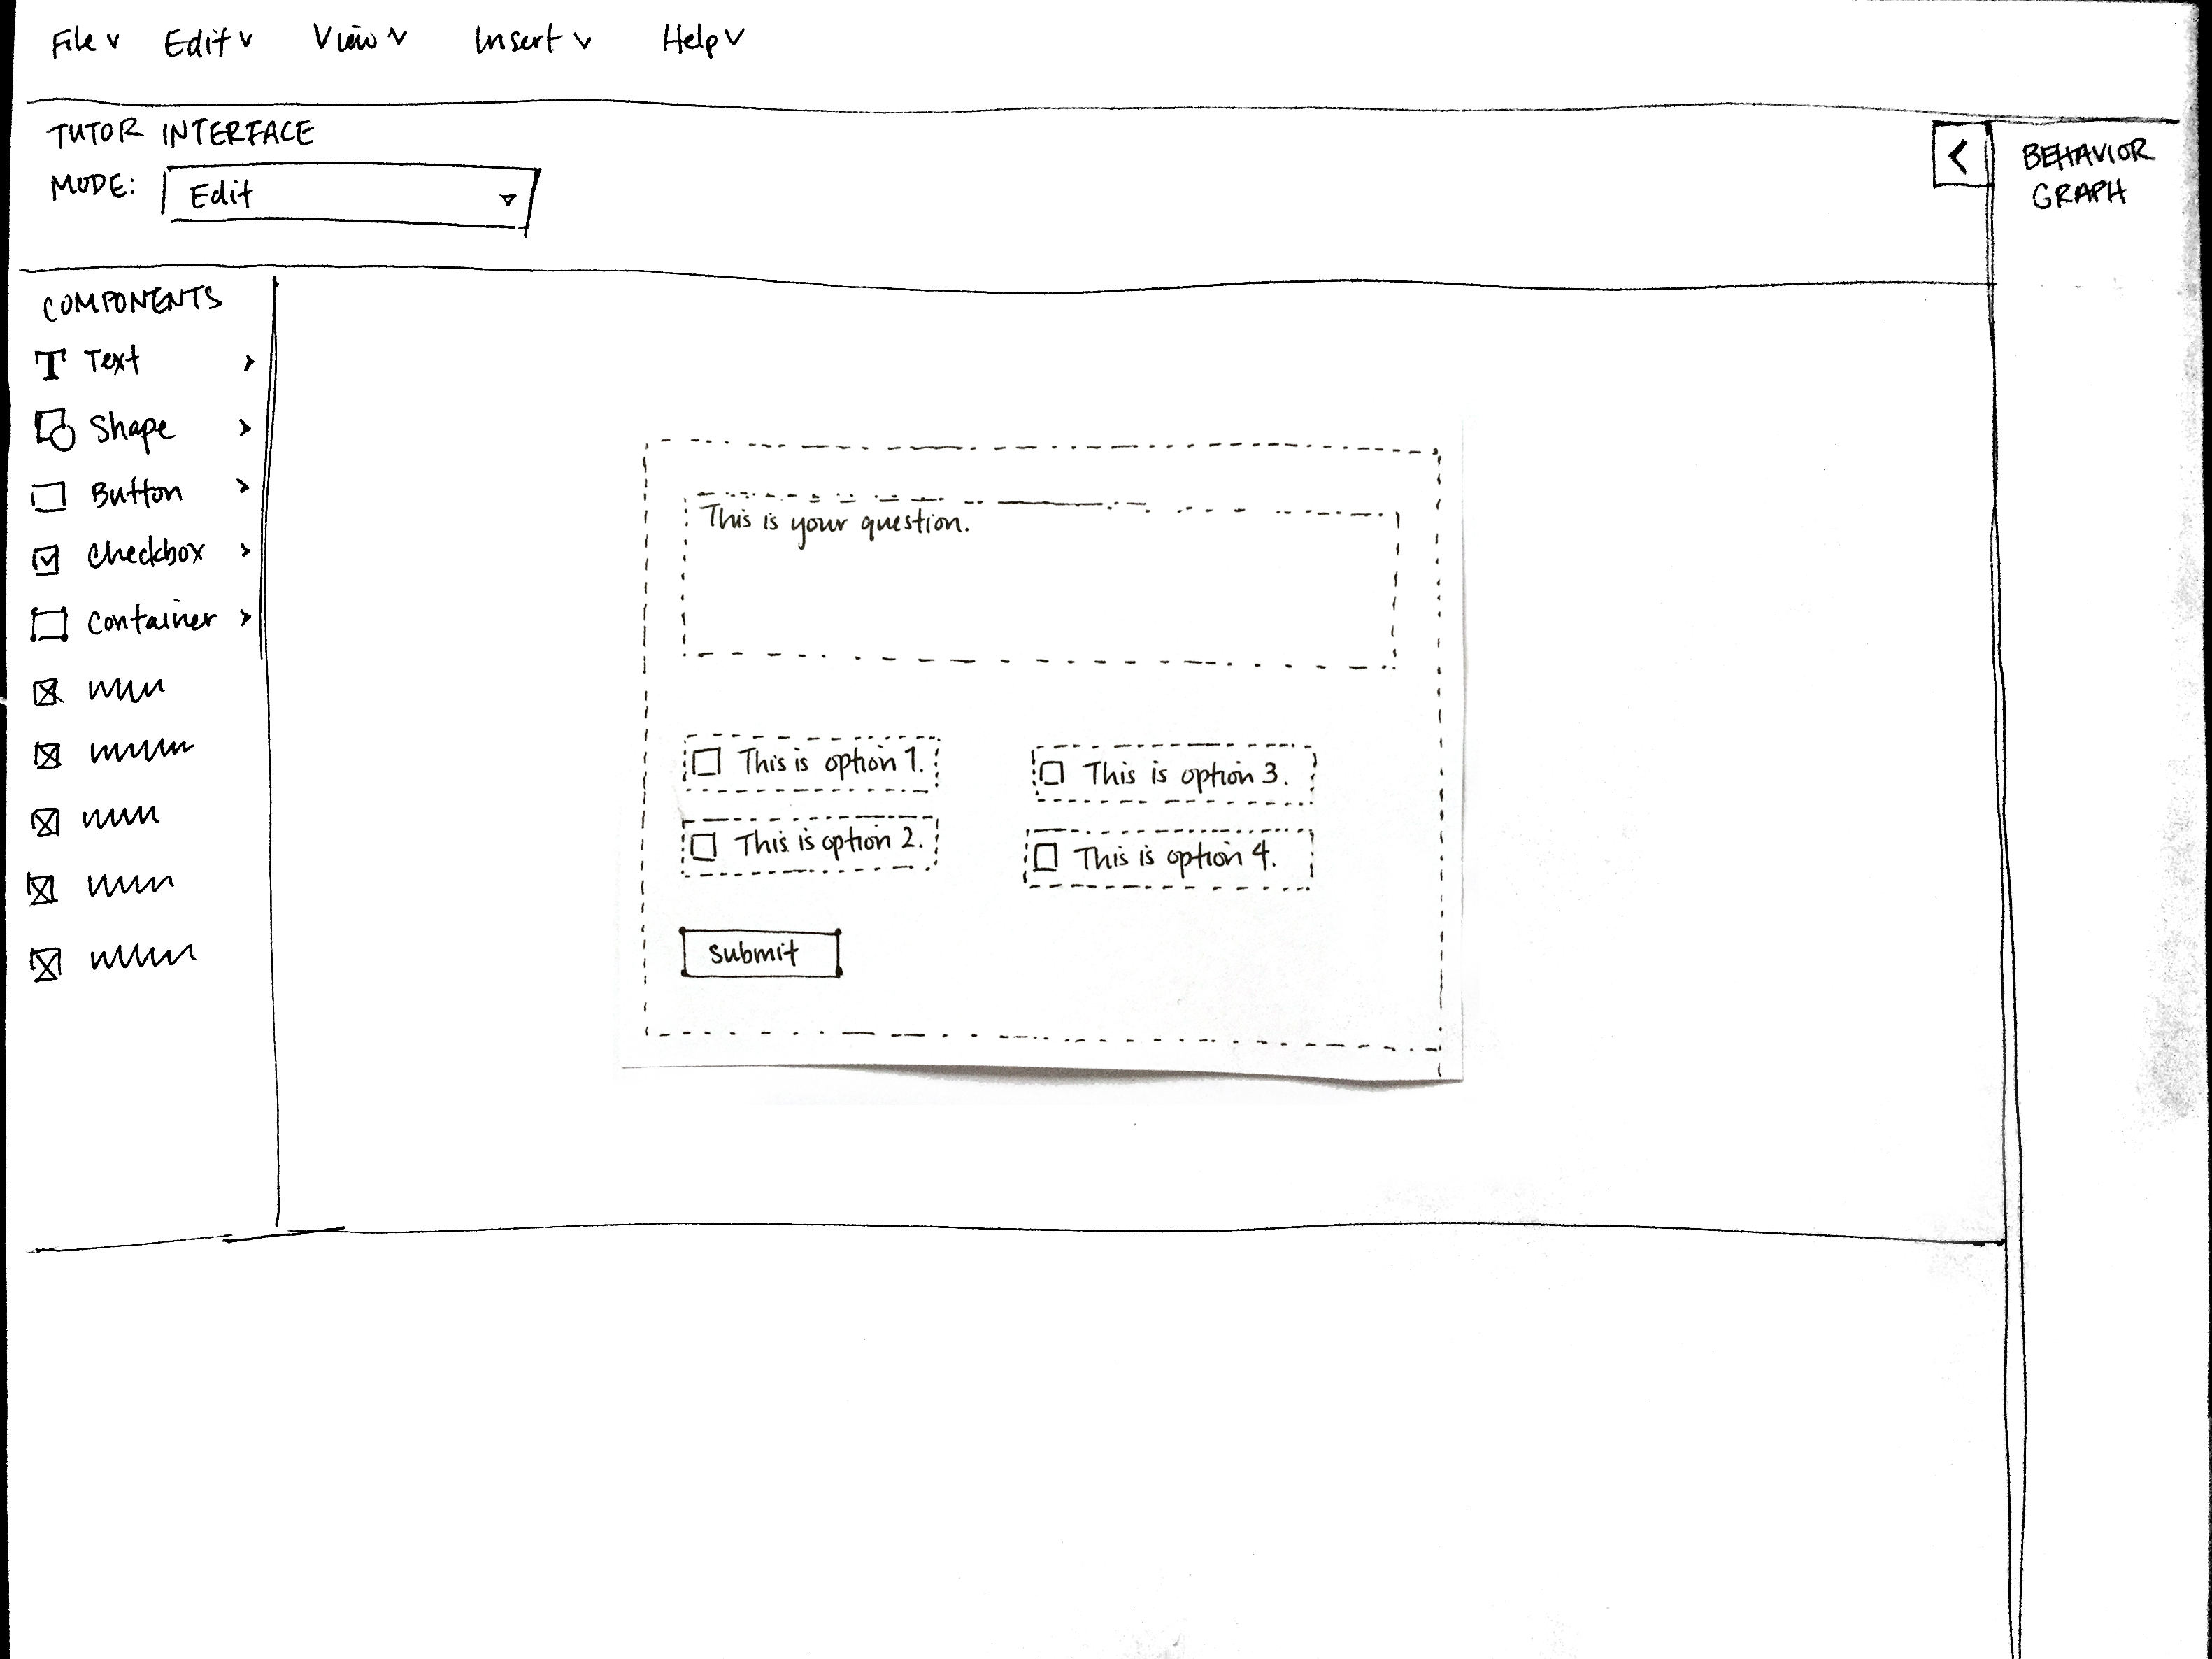 File Edit View Insert Help
TUTOR INTERFACE
MODE: Edit
BEHAVIOR
GRAPH
COMPONENTS
T Text
Shape
Button
Checkbox
Container
This is your question.
This is option 1.
This is option 2.
This is option 3.
This is option 4.
Submit